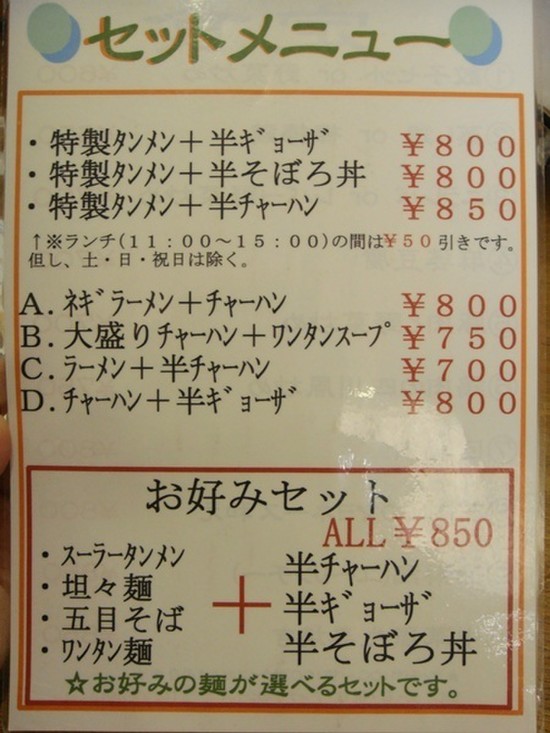 セットメニュー
・特製ﾀﾝﾒﾝ＋半ｷﾞｮｰｻﾞ ￥８００
・特製ﾀﾝﾒﾝ＋半そぼろ丼 ￥８００
・特製ﾀﾝﾒﾝ＋半ﾁｬｰﾊﾝ ￥８５０
↑※ランチ(１１：００～１５：００)の間は￥５０引きです。
但し、土・日・祝日は除く。
A. ﾈｷﾞﾗｰﾒﾝ＋ﾁｬｰﾊﾝ ￥８００
B. 大盛りﾁｬｰﾊﾝ＋ﾜﾝﾀﾝｽｰﾌﾟ ￥７５０
C. ﾗｰﾒﾝ＋半ﾁｬｰﾊﾝ ￥７００
D. ﾁｬｰﾊﾝ＋半ｷﾞｮｰｻﾞ ￥８００
お好みセット
ALL￥850
・ｽｰﾗｰﾀﾝﾒﾝ
・坦々麺
・五目そば
・ﾜﾝﾀﾝ麺
＋
半ﾁｬｰﾊﾝ
半ｷﾞｮｰｻﾞ
半そぼろ丼
☆お好みの麺が選べるセットです。